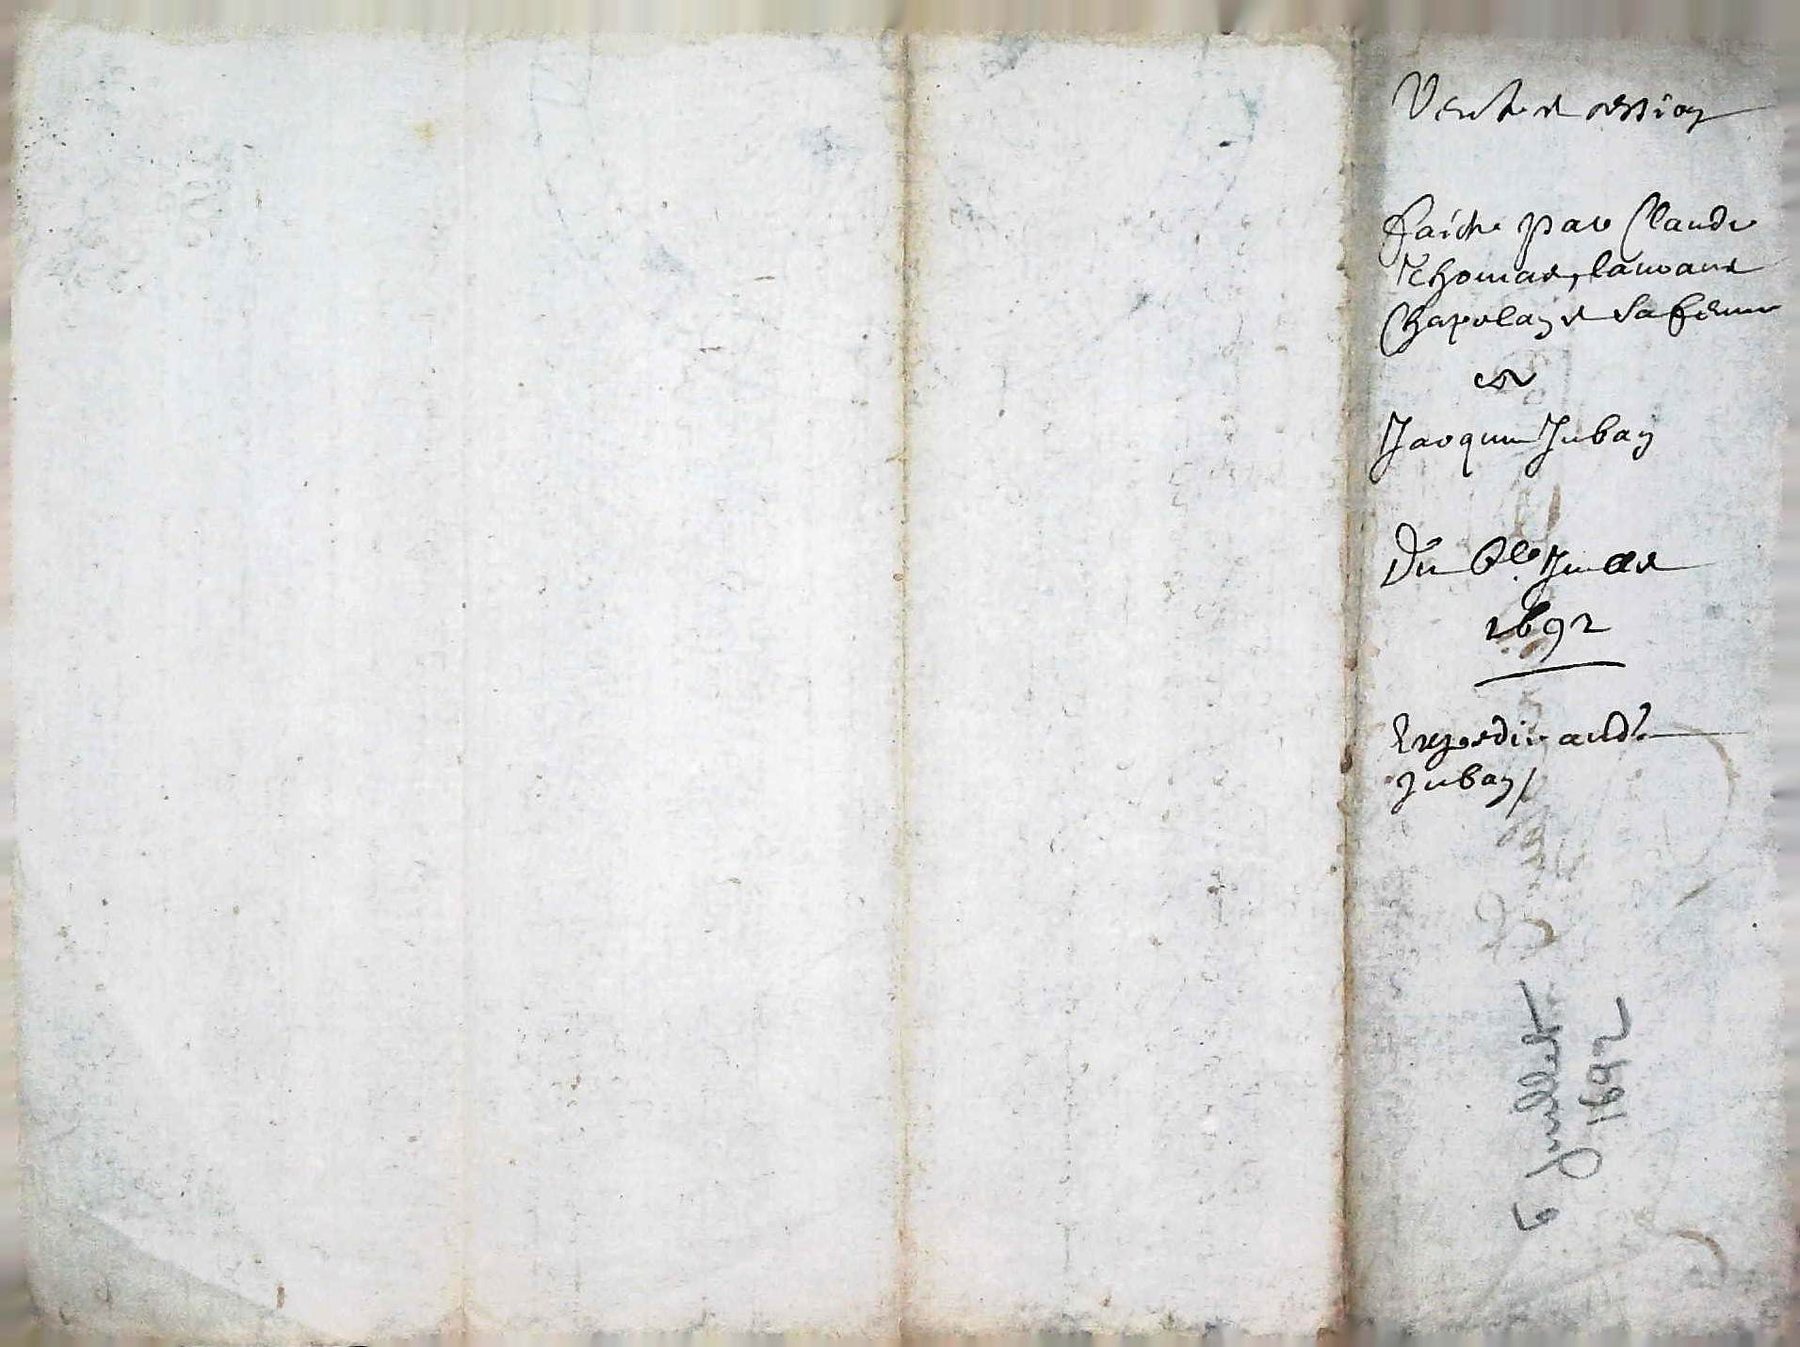 Vente et cession
faicte par Claude
Thomas, la
Chapelay et sa femme
a
Jacques Jubay
Du 6e Juillet
1692
Expedié audt
Jubay
6 Juillet
1692